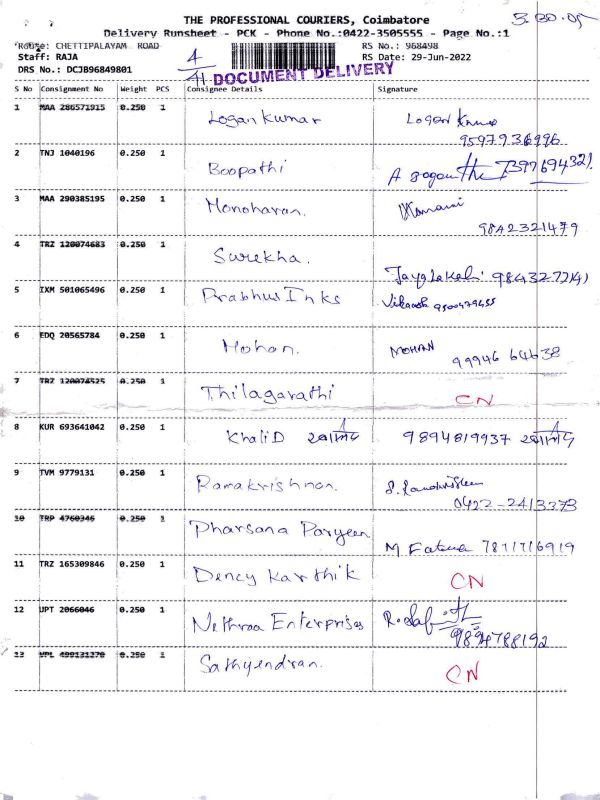 THE PROFESSIONAL COURIERS, Coimbatore
Delivery Runsheet - PCK - Phone No.:0422-3505555 - Page No.:1
Route: CHETTIPALAYAM ROAD
RS No.: 968498
Staff: RAJA
4/41
RS Date: 29-Jun-2022
DRS No.: DCJB96849801
DOCUMENT DELIVERY
S No Consignment No Weight PCS Consignee Details Signature
1 MAA 286571915 0.250 1 Logankumar Logan Kumar
9597936996
2 TNJ 1040196 0.250 1 Boopathi
3 MAA 290385195 0.250 1 Manoharan.
9842321479
4 TRZ 120074683 0.250 1 Surekha.
5 IXM 501065496 0.250 1 Prabhus Inks 9500479455
6 EDQ 20565784 0.250 1 Mohan. MOHAN
99946 64638
7 TRZ 120074525 0.250 1 Thilagavathi CN
8 KUR 693641042 0.250 1 KhaliD 9894819937
9 TVM 9779131 0.250 1 Ramakrishnan.
0422-2413373
10 TRP 4760346 0.250 1 Pharsana Parveen
M Fatima 7811716919
11 TRZ 165309846 0.250 1 Dency Karthik CN
12 UPT 2066046 0.250 1 Nethraa Enterprises
9894788192
13 VPL 499131270 0.250 1 Sathyendran. CN